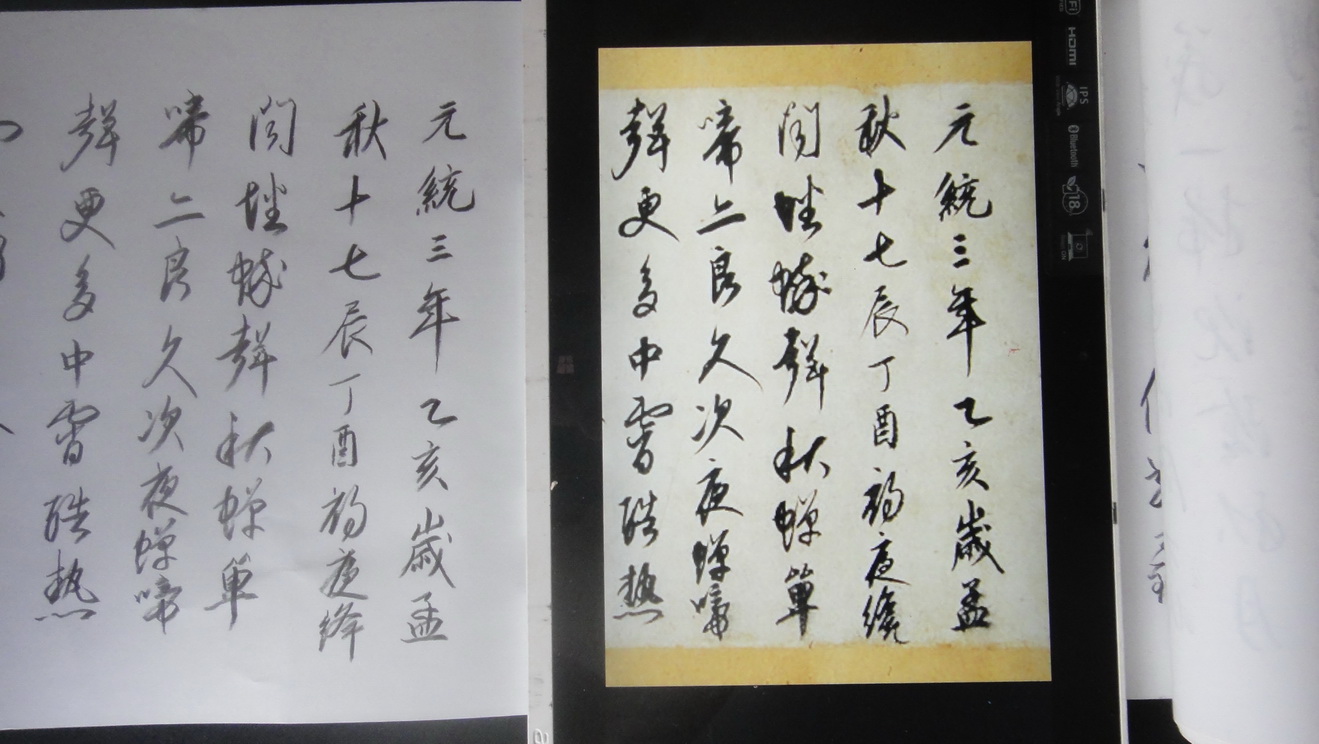 HDMI
IPS
Bluetooth
18
元統三年乙亥歲孟
秋十七辰丁酉初夜纔
聞聲秋蟬單
啼二良久次夜蟬啼
聲更多中霄酷熱
元統三年乙亥歲孟
秋十七辰丁酉初夜
聞聲秋蟬單
啼二良久次夜蟬啼
聲更多中霄酷熱